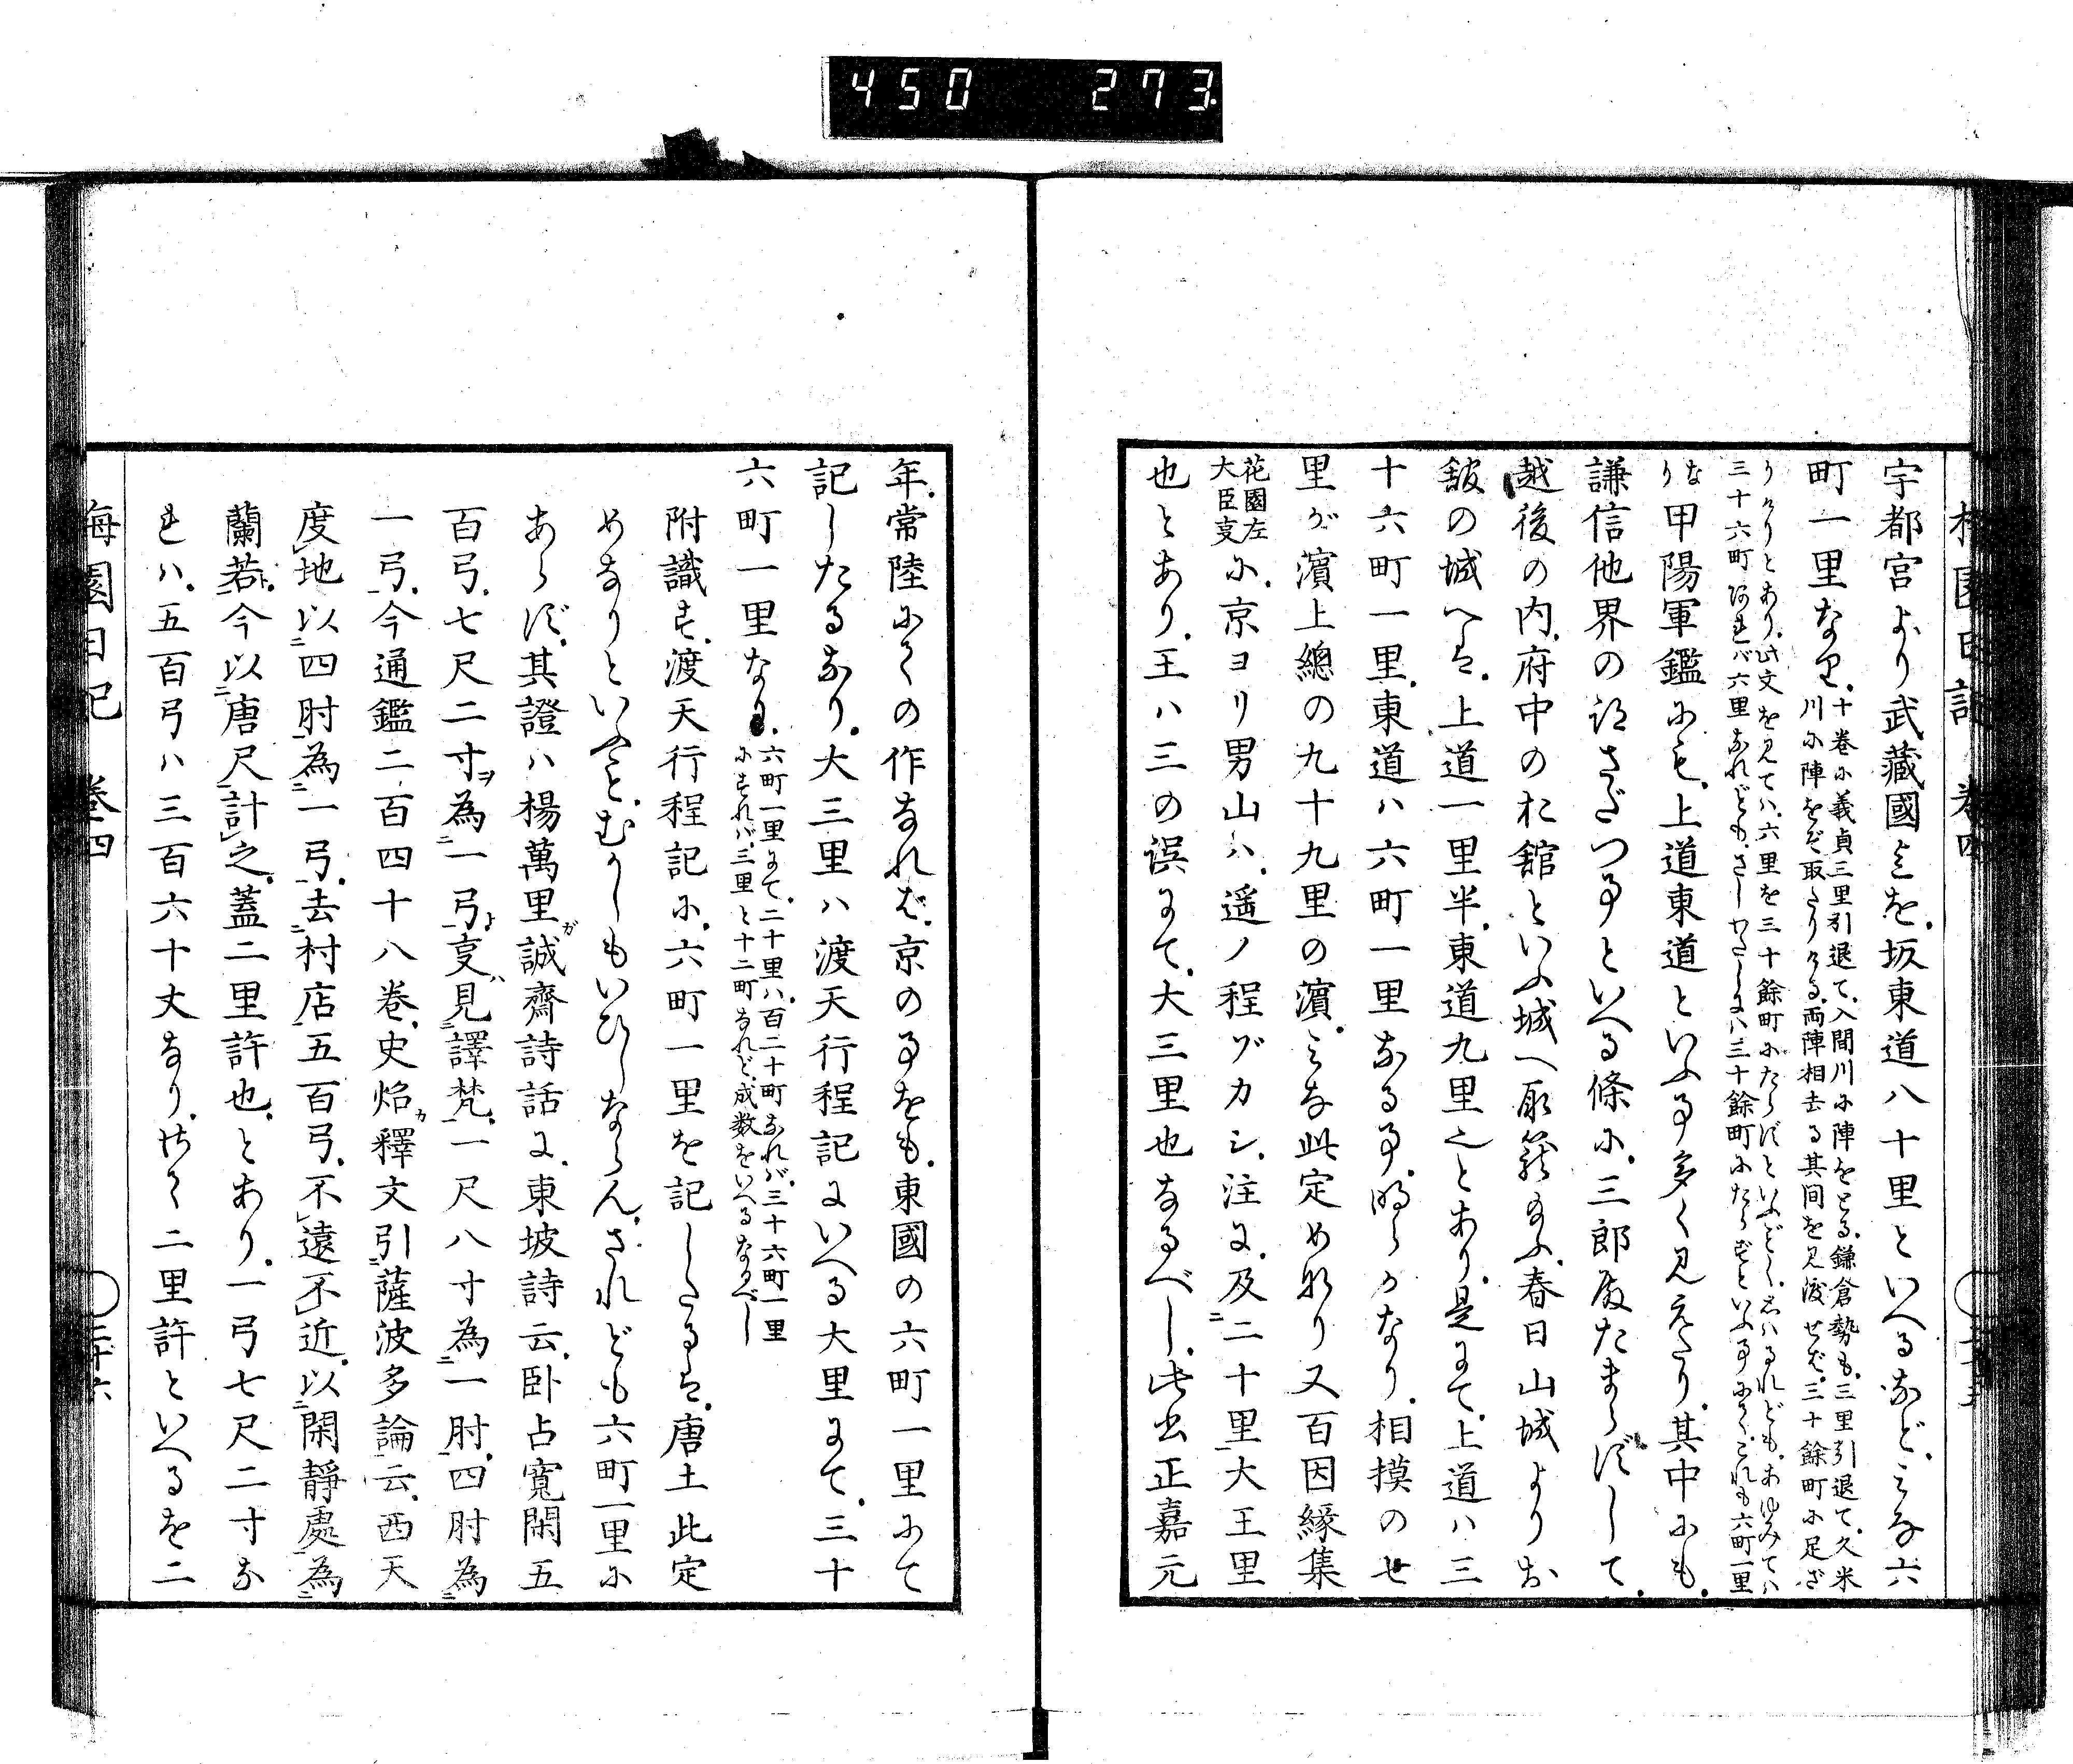 450 273
梅園日記 卷四
宇都宮より武藏國までを、坂東道八十里といへるなど、みな六
町一里なり、十卷に義貞三里引退て、入間川に陣をとる、鎌倉勢も、三里引退て、久米
川に陣をぞ取たりける、両陣相去る其间を見渡せば、三十餘町に足ざ
りけりとあり、此文を見ては、六里を三十餘町にたらずといふごとく、きこゆれども、あゆみては
三十六町あれば六里なれども、さしわたしには三十餘町にたらずといふ事にて、これも六町一里
なり
甲陽軍鑑にも、上道東道といふ事多く見えたり、其中にも、
謙信他界の沙さだつ事といへる條に、三郎殿たまらずして、
越後の内、府中のお舘といふ城へ取籠給ふ、春日山城よりお
舘の城へは、上道一里半、東道九里也とあり、是にて、上道ハ三
十六町一里、東道ハ六町一里なる事、明らかなり、相摸の七
里が濵上總の九十九里の濵、みな此定め也り又百因緣集
花園左
大臣叓
に、京ヨリ男山ハ、遥ノ程ヅカシ、注に、及二十里大王里
也とあり、王ハ三の误にて、大三里也なるべし、此书正嘉元
年、常陸にての作なれば、京の事をも、東國の六町一里にて
記したるなり、大三里ハ渡天行程記にいへる大里にて、三十
六町一里なり、六町一里にて、二十里ハ、百二十町なれバ、三十六町一里
にすれバ、三里と十二町なれど、成数をいへるなるべし
附識す、渡天行程記に、六町一里を記したるは、唐土此定
めなりといふこと、むかしもいひしならん、されども六町一里に
あらず、其證ハ楊萬里が誠齊詩話に、東坡詩云、卧占寬閑五
百弓、七尺二寸ヲ為一弓、叓見譯梵、一尺八寸為一肘、四肘為
一弓、今通鑑二百四十八巻、史炤カ釋文引薩波多論云、西天
度地以四肘為一弓、去村店五百弓、不遠不近、以閑靜處為
蘭若、今以唐尺計之、蓋二里許也、とあり、一弓七尺二寸な
れハ、五百弓ハ三百六十丈なり、けく二里許といへるを二
梅園日記 卷四
二十六